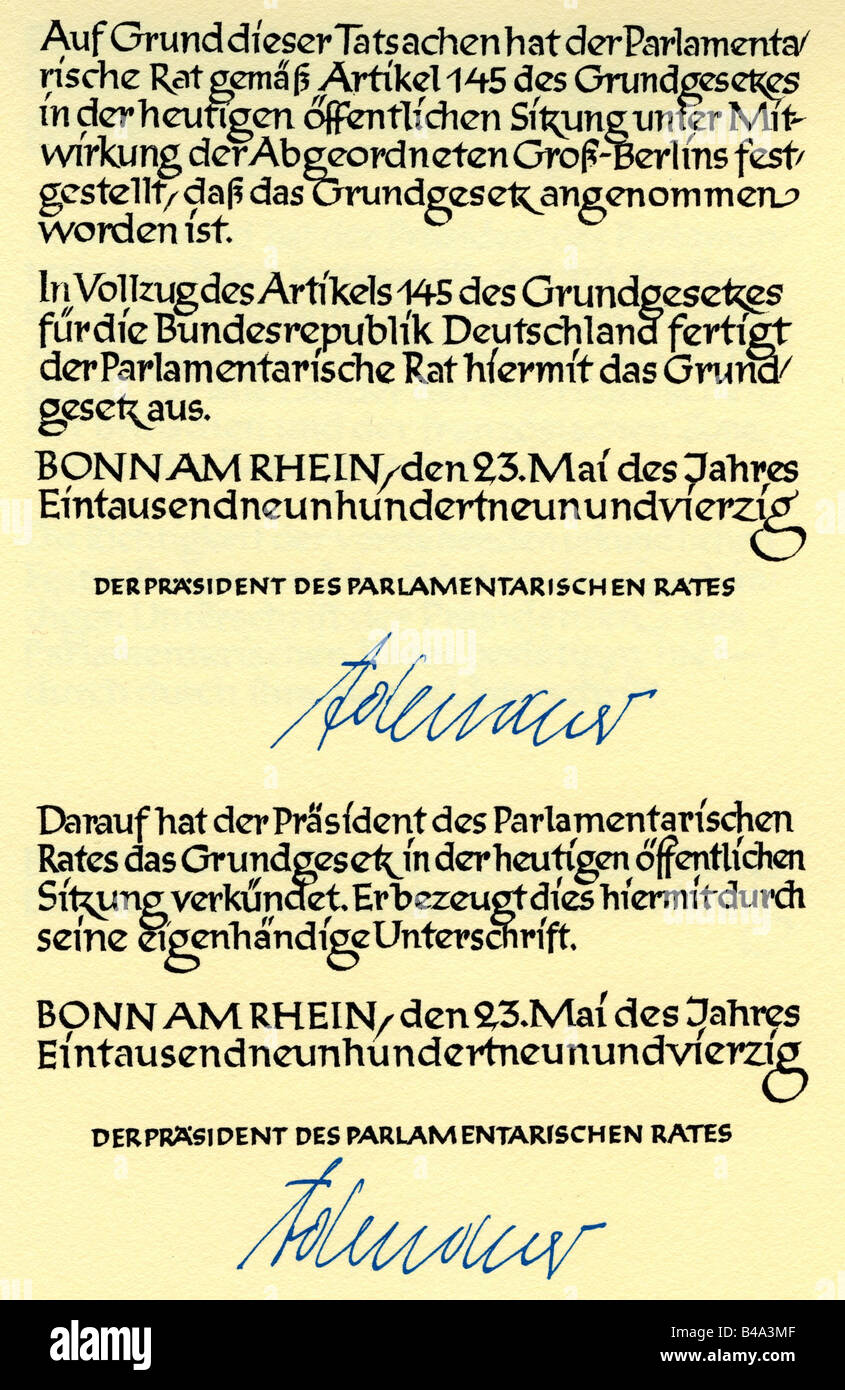 Auf Grund dieser Tatsachen hat der Parlamenta/
rische Rat gemäß Artikel 145 des Grundgesetzes
in der heutigen öffentlichen Sitzung unter Mit-
wirkung der Abgeordneten Groß-Berlins fest/
gestellt, daß das Grundgesetz angenommen
worden ist.
In Vollzug des Artikels 145 des Grundgesetzes
für die Bundesrepublik Deutschland fertigt
der Parlamentarische Rat hiermit das Grund/
gesetz aus.
BONN AM RHEIN, den 23. Mai des Jahres
Eintausendneunhundertneunundvierzig
DER PRÄSIDENT DES PARLAMENTARISCHEN RATES
Adenauer
Darauf hat der Präsident des Parlamentarischen
Rates das Grundgesetz in der heutigen öffentlichen
Sitzung verkündet. Er bezeugt dies hiermit durch
seine eigenhändige Unterschrift.
BONN AM RHEIN, den 23. Mai des Jahres
Eintausendneunhundertneunundvierzig
DER PRÄSIDENT DES PARLAMENTARISCHEN RATES
Adenauer
alamy
Image ID: B4A3MF
www.alamy.com